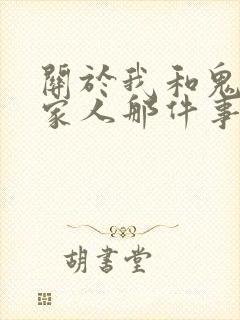 關於我和鬼
家人那件事
胡書堂